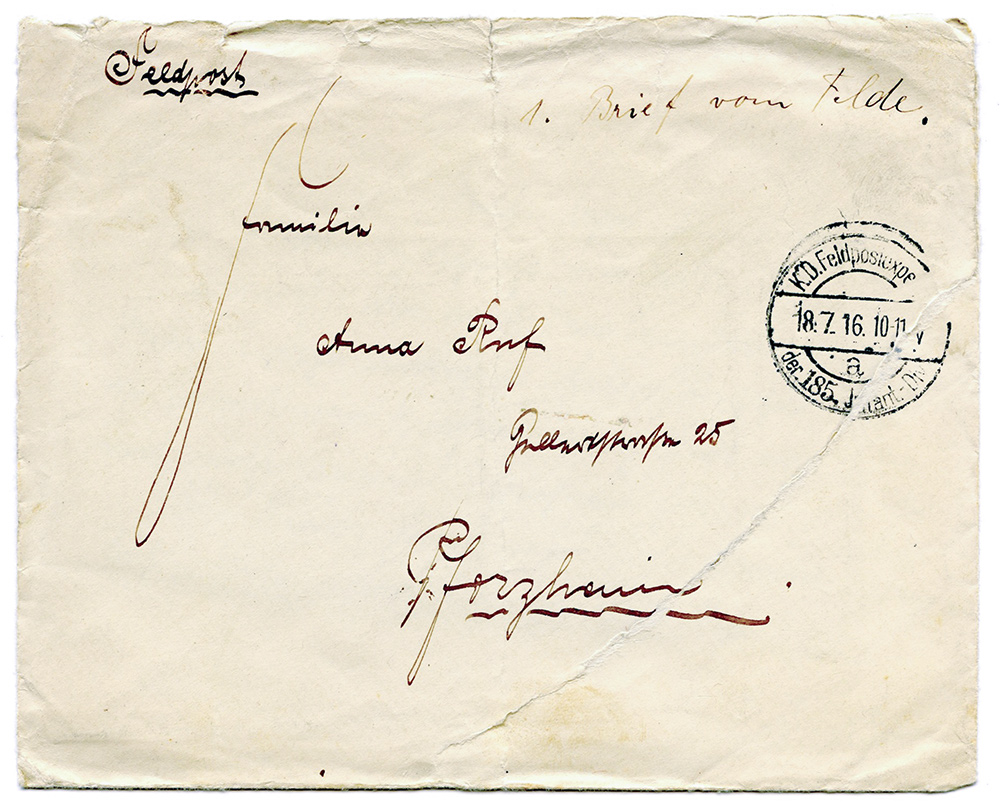 Feldpost
1. Brief vom Felde.
Familie
Anna Ruf
25
Pforzheim
K.D. Feldpostexpe
18.7.16. 10-11 V
a
der 185. Infant.-Div